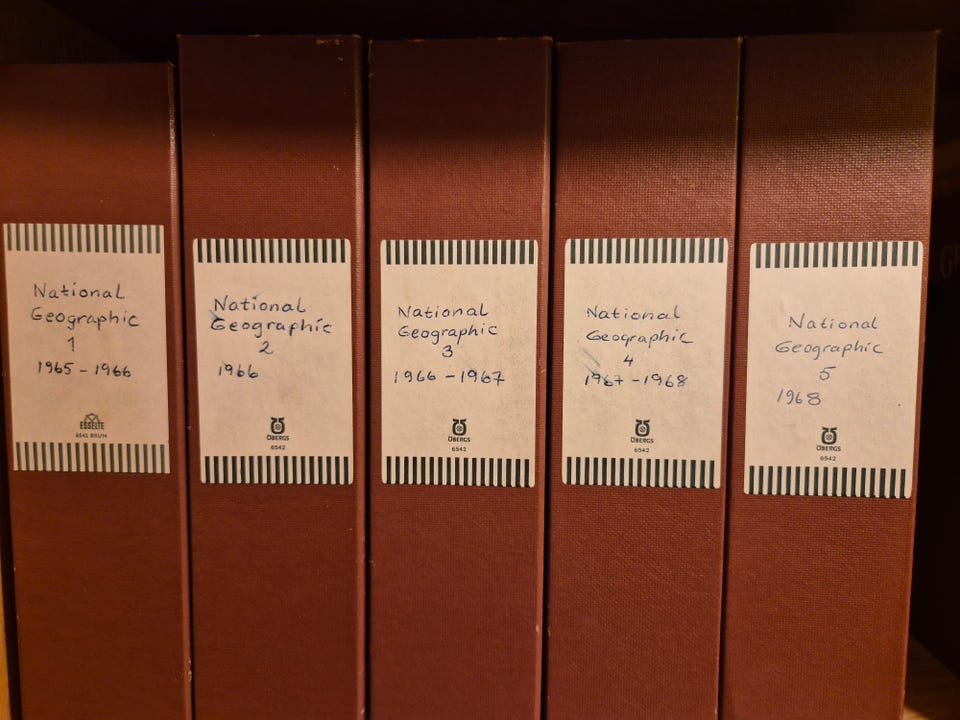 National
Geographic
1
1965 - 1966
ESSELTE
6542 BRUN
National
Geographic
2
1966
ÖBERGS
6542
National
Geographic
3
1966 - 1967
ÖBERGS
6542
National
Geographic
4
1967 - 1968
ÖBERGS
6542
National
Geographic
5
1968
ÖBERGS
6542